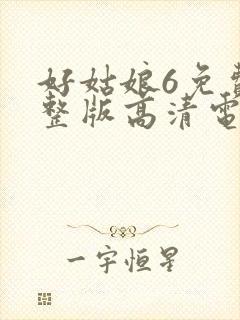 好姑娘6免費
整版高清電
一宇恒星